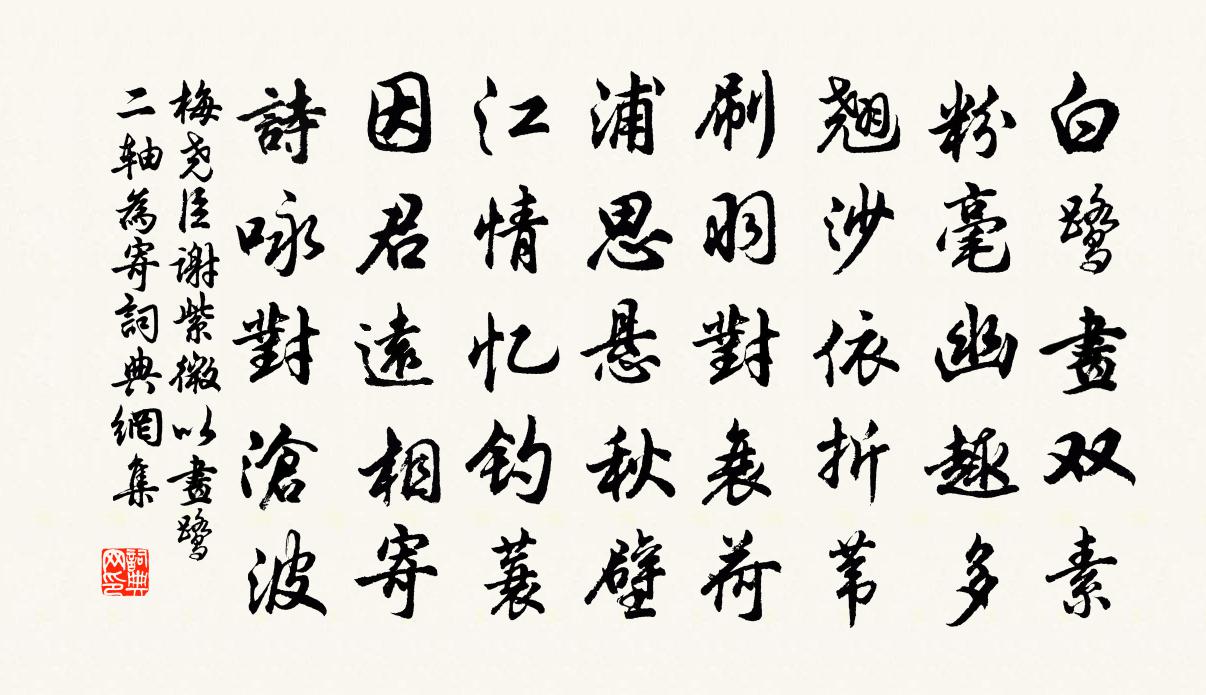 白鹭畫双素
粉毫幽趣多
翘沙依折苇
刷羽對衰荷
浦思悬秋壁
江情忆钓蓑
因君遠相寄
詩咏對滄波
梅尧臣谢紫微以畫鹭
二轴為寄詞典網集
詞典网印